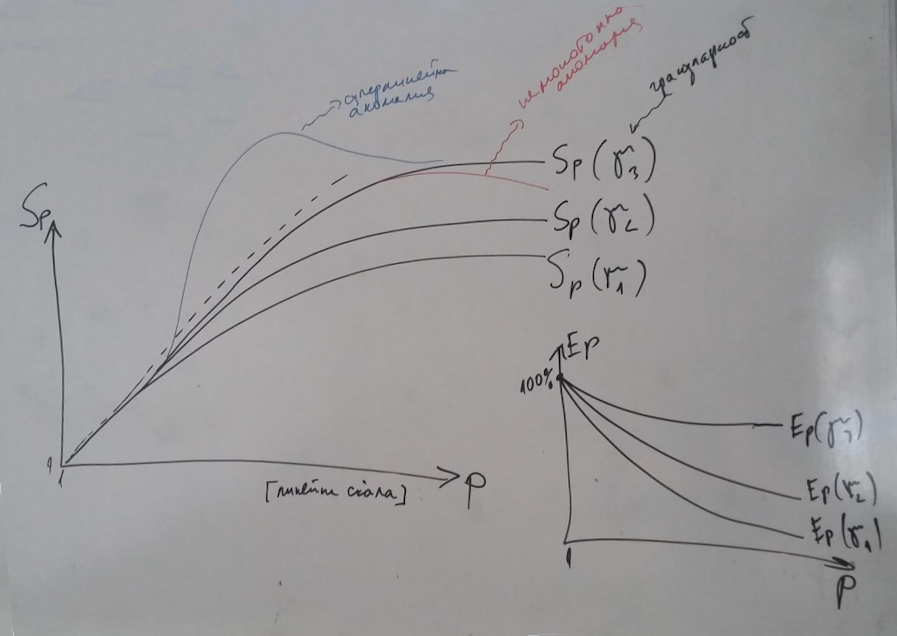 суперлинейна
аномалия
немонотонна
аномалия
грануларност
Sp
Sp(r₃)
Sp(r₂)
Sp(r₁)
1
1
[линейна скала]
p
Ep
100%
Ep(r₃)
Ep(r₂)
Ep(r₁)
1
p